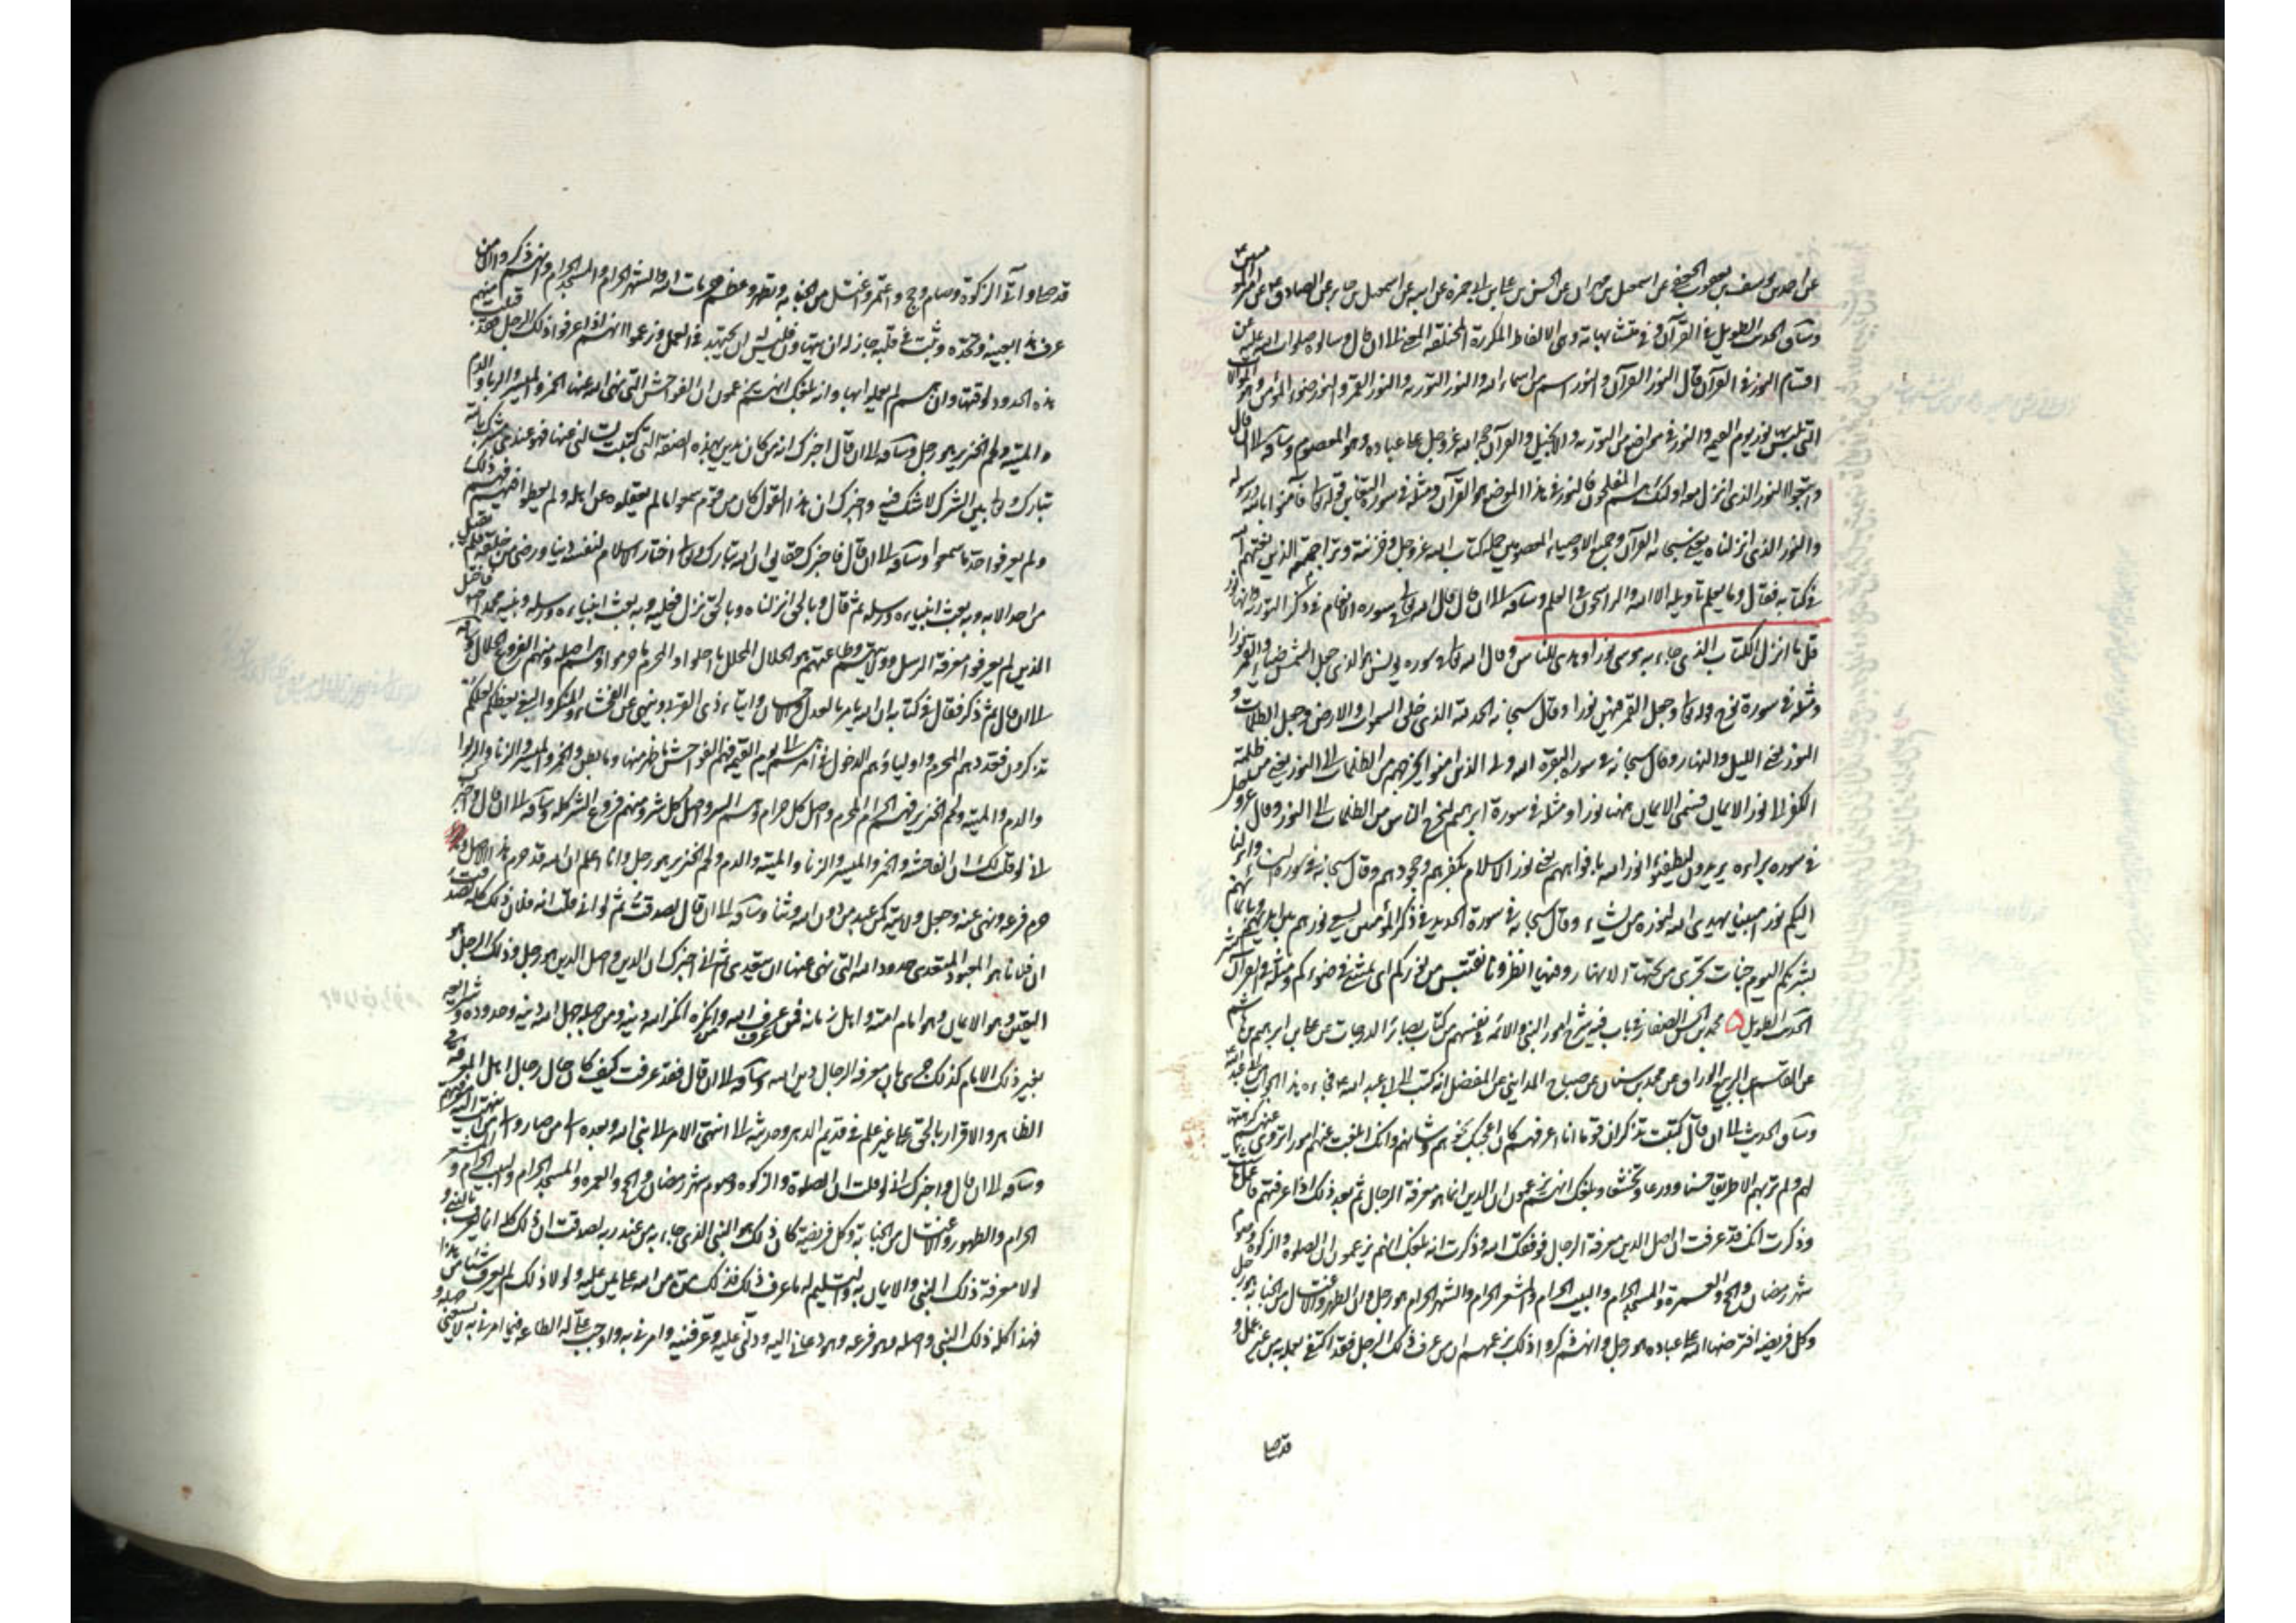 عن احمد بن يوسف بن يعقوب الجعفي عن اسمعيل بن مهران عن الحسن بن علي بن ابي حمزه عن ابيه عن اسمعيل بن جابر عن الصادق ع عن امير المؤمنين ع
وساق الحديث الطويل في القرآن وفي متشابهاته وهي الالفاظ المكررة المختلفة المعنى الى ان قال وسالوه صلوات الله عليه عن
اقسام النور في القرآن قال النور القرآن والنور اسم من اسماء الله والنور التورية والنور القمر والنور ضوء المؤمن وهو الموالات
التي يلبس نور يوم القيمه والنور في مواضع من التورية والانجيل والقرآن حجة الله عز وجل على عباده وهو المعصوم وساقه الى ان قال
واتبعوا النور الذي انزل معه اولئك هم المفلحون فالنور في هذا الموضع هو القرآن ومثله في سورة التغابن قوله تعالى فآمنوا بالله ورسوله
والنور الذي انزلناه يعني سبحانه القرآن وجميع الاوصياء المعصومين حملة كتاب الله عز وجل وخزنته وتراجمته الذين نعتهم الله
في كتابه فقال وما يعلم تاويله الا الله والراسخون في العلم وساقه الى ان قال قال الله تعالى في سورة الانعام في ذكر التورية وانها نور
قل من انزل الكتاب الذي جاء به موسى نورا وهدى للناس وقال الله تعالى في سورة يونس هو الذي جعل الشمس ضياء والقمر نورا
ومثله في سورة نوح قوله تعالى وجعل القمر فيهن نورا وقال سبحانه الحمد لله الذي خلق السموات والارض وجعل الظلمات و
النور يعني الليل والنهار وقال سبحانه في سورة البقرة الله ولي الذين امنوا يخرجهم من الظلمات الى النور يعني من ظلمة
الكفر الى نور الايمان فسمى الايمان ههنا نورا ومثله في سورة ابرهيم لتخرج الناس من الظلمات الى النور وقال عز وجل
في سورة براءة يريدون ليطفئوا نور الله بافواههم يعني نور الاسلام بكفرهم وجحودهم وقال سبحانه في سورة النساء وانزلنا
اليكم نورا مبينا يهدي الله لنوره من يشاء وقال سبحانه في سورة الحديد في ذكر المؤمنين يسعى نورهم بين ايديهم وبايمانهم
بشريكم اليوم جنات تجري من تحتها الانهار وفيها انظرونا نقتبس من نوركم اى نمشي في ضوءكم ومثله في القرآن كثير
الحديث الطويل ٥ محمد بن الحسن الصفار في باب فيه شرح امور النبي والائمة في نفسهم من كتاب بصائر الدرجات عن علي بن ابرهيم بن هاشم
عن القاسم بن الربيع الوراق عن محمد بن سنان عن صباح المدايني عن المفضل انه كتب الى ابي عبد الله ع فجاءه هذا الجواب من ابي عبد الله ع
وساق الحديث الى ان قال كتبت تذكر ان قوما انا اعرفهم كان اعجبك نحوهم وشانهم وانك ابلغت عنهم امورا تروى عنهم كرهتها
لهم ولم تر بهم الا طريقا حسنا وورعا وتخشعا وبلغك انهم يزعمون ان الدين انما هو معرفة الرجال ثم بعد ذلك اذا عرفتهم فاعمل ما شئت
وذكرت انك قد عرفت ان اصل الدين معرفة الرجال فوفقك الله وذكرت انه بلغك انهم يزعمون ان الصلوة والزكوة وصوم
شهر رمضان والحج والعمرة والمسجد الحرام والبيت الحرام والمشعر الحرام والشهر الحرام هو رجل وان الطهر والاغتسال من الجنابة هو رجل
وكل فريضة افترضها الله على عباده هو رجل وانهم ذكروا ذلك بزعمهم ان من عرف ذلك الرجل فقد اكتفى بعلمه به من غير عمل و
قد صلى
قد صلى وآتى الزكوة وصام وحج واعتمر واغتسل من الجنابة وتطهر وعظم حرمات الله والشهر الحرام والمسجد الحرام وانهم ذكروا ان من
عرف هذا بعينه وبحده وثبت في قلبه جاز له ان يتهاون فليس له ان يجتهد في العمل وزعموا انهم اذا عرفوا ذلك الرجل فقد قبلت منهم
هذه الحدود لوقتها وان هم لم يعملوا بها وانه بلغك انهم يزعمون ان الفواحش التي نهى الله عنها الخمر والميسر والربا والدم
والميتة ولحم الخنزير هو رجل وساقه الى ان قال اخبرك انه من كان يدين بهذه الصفة التي كتبت تسالني عنها فهو عندي مشرك بالله
تبارك وتعالى بين الشرك لا شك فيه واخبرك ان هذا القول كان من قوم سمعوا ما لم يعقلوه عن اهله ولم يعطوا فهم ذلك
ولم يعرفوا حد ما سمعوا وساقه الى ان قال فاخبرك حقايق ان الله تبارك وتعالى اختار الاسلام لنفسه دينا ورضي من خلقه فلم يقبل
من احد الا به وبه بعث انبياءه ورسله ثم قال وبالحق انزلناه وبالحق نزل فعليه وبه بعث انبياءه ورسله ونبيه محمدا
الذين لم يعرفوا معرفة الرسل وولايتهم وطاعتهم هو الحلال المحلل ما احلوا والمحرم ما حرموا وهم اصله ومنهم الفروع الحلال وساقه
الى ان قال ثم ذكر فقال في كتابه ان الله يامر بالعدل والاحسان وايتاء ذي القربى وينهى عن الفحشاء والمنكر والبغي يعظكم لعلكم
تذكرون فعدوهم المحرم واولياؤهم الدخول في امرهم الى يوم القيمة فهم الفواحش ما ظهر منها وما بطن والخمر والميسر والزنا والربوا
والدم والميتة ولحم الخنزير فهم الحرام المحرم واصل كل حرام وهم الشر واصل كل شر ومنهم فروع الشر كله وساقه الى ان قال واخبرك
اني لو قلت لك ان الفاحشة والخمر والميسر والزنا والميتة والدم ولحم الخنزير هو رجل وانا اعلم ان الله قد حرم هذا الاصل و
حرم فرعه ونهى عنه وجعل ولايته كمن عبد من دون الله وثنا وساقه الى ان قال لصدقت ثم لو اني قلت انه فلان ذلك كله لصدقت
ان فلانا هو المعبود المتعدي حدود الله التي نهى عنها ان يتعدى ثم اني اخبرك ان الدين واصل الدين هو رجل وذلك الرجل هو
اليقين وهو الايمان وهو امام امته واهل زمانه فمن عرفه عرف الله ومن انكره انكر الله ودينه ومن جهله جهل الله ودينه وحدوده وشرايعه
بغير ذلك الامام كذلك جرى بان معرفة الرجال دين الله وساقه الى ان قال فقد عرفت كيف كان حال رجال اهل المعرفة في
الظاهر والاقرار بالحق على غير علم في قديم الدهر وحديثه الى ان انتهى الامر الى نبي الله وبعده الى من صاروا
وساقه الى ان قال واخبرك اني لو قلت ان الصلوة والزكوة وصوم شهر رمضان والحج والعمرة والمسجد الحرام والبيت الحرام والمشعر
الحرام والطهور والاغتسال من الجنابة وكل فريضة كان ذلك هو النبي الذي جاء به من عند ربه لصدقت ان ذلك كله انما يعرف بالنبي و
لولا معرفة ذلك النبي والايمان به والتسليم له ما عرف ذلك فذلك من الله على من يمن عليه ولولا ذلك لم يعرف شيئا من هذا
فهذا كله ذلك النبي واصله وهو فرعه وهو دعاني اليه ودلني عليه وعرفنيه وامرني به واوجب علي له الطاعة فيما امرني به لا يسعني جهله و